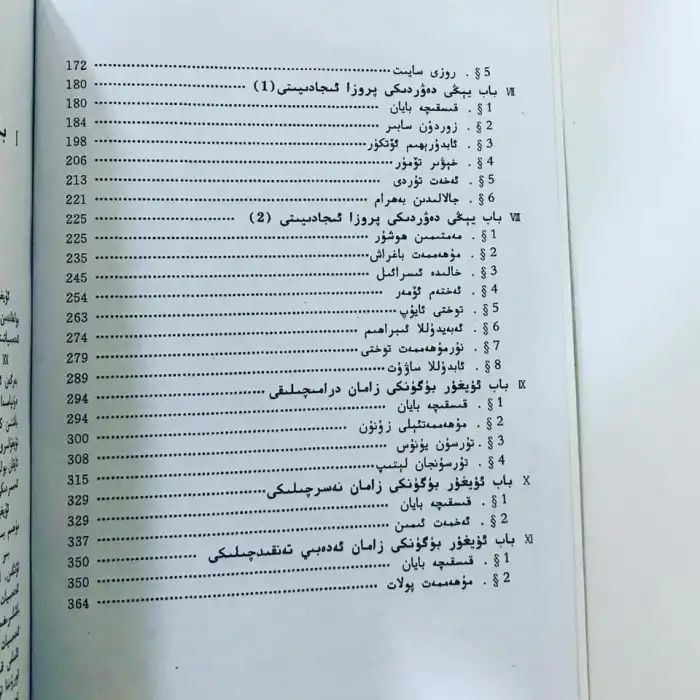 § 5 . روزى سايىت 172
Ⅶ باب يېڭى دەۋردىكى پروزا ئىجادىيىتى (1) 180
§ 1 . قىسقىچە بايان 180
§ 2 . زوردۇن سابىر 184
§ 3 . ئابدۇرېھىم ئۆتكۈر 198
§ 4 . خېۋىر تۆمۈر 206
§ 5 . ئەخەت تۇردى 213
§ 6 . جالالىدىن بەھرام 221
Ⅷ باب يېڭى دەۋردىكى پروزا ئىجادىيىتى (2) 225
§ 1 . مەمتىمىن ھوشۇر 225
§ 2 . مۇھەممەت باغراش 235
§ 3 . خالىدە ئىسرائىل 245
§ 4 . ئەختەم ئۆمەر 254
§ 5 . توختى ئايۇپ 263
§ 6 . ئەبەيدۇللا ئىبراھىم 274
§ 7 . نۇرمۇھەممەت توختى 279
§ 8 . ئابدۇللا ساۋۇت 289
Ⅸ باب ئۇيغۇر بۈگۈنكى زامان درامىچىلىقى 294
§ 1 . قىسقىچە بايان 294
§ 2 . مۇھەممەتئېلى زۇنۇن 300
§ 3 . تۇرسۇن يۇنۇس 308
§ 4 . تۇرسۇنجان لېتىپ 315
Ⅹ باب ئۇيغۇر بۈگۈنكى زامان نەسرچىلىكى 329
§ 1 . قىسقىچە بايان 329
§ 2 . ئەخمەت ئىمىن 337
Ⅺ باب ئۇيغۇر بۈگۈنكى زامان ئەدەبىي تەنقىدچىلىكى 350
§ 1 . قىسقىچە بايان 350
§ 2 . مۇھەممەت پولات 364